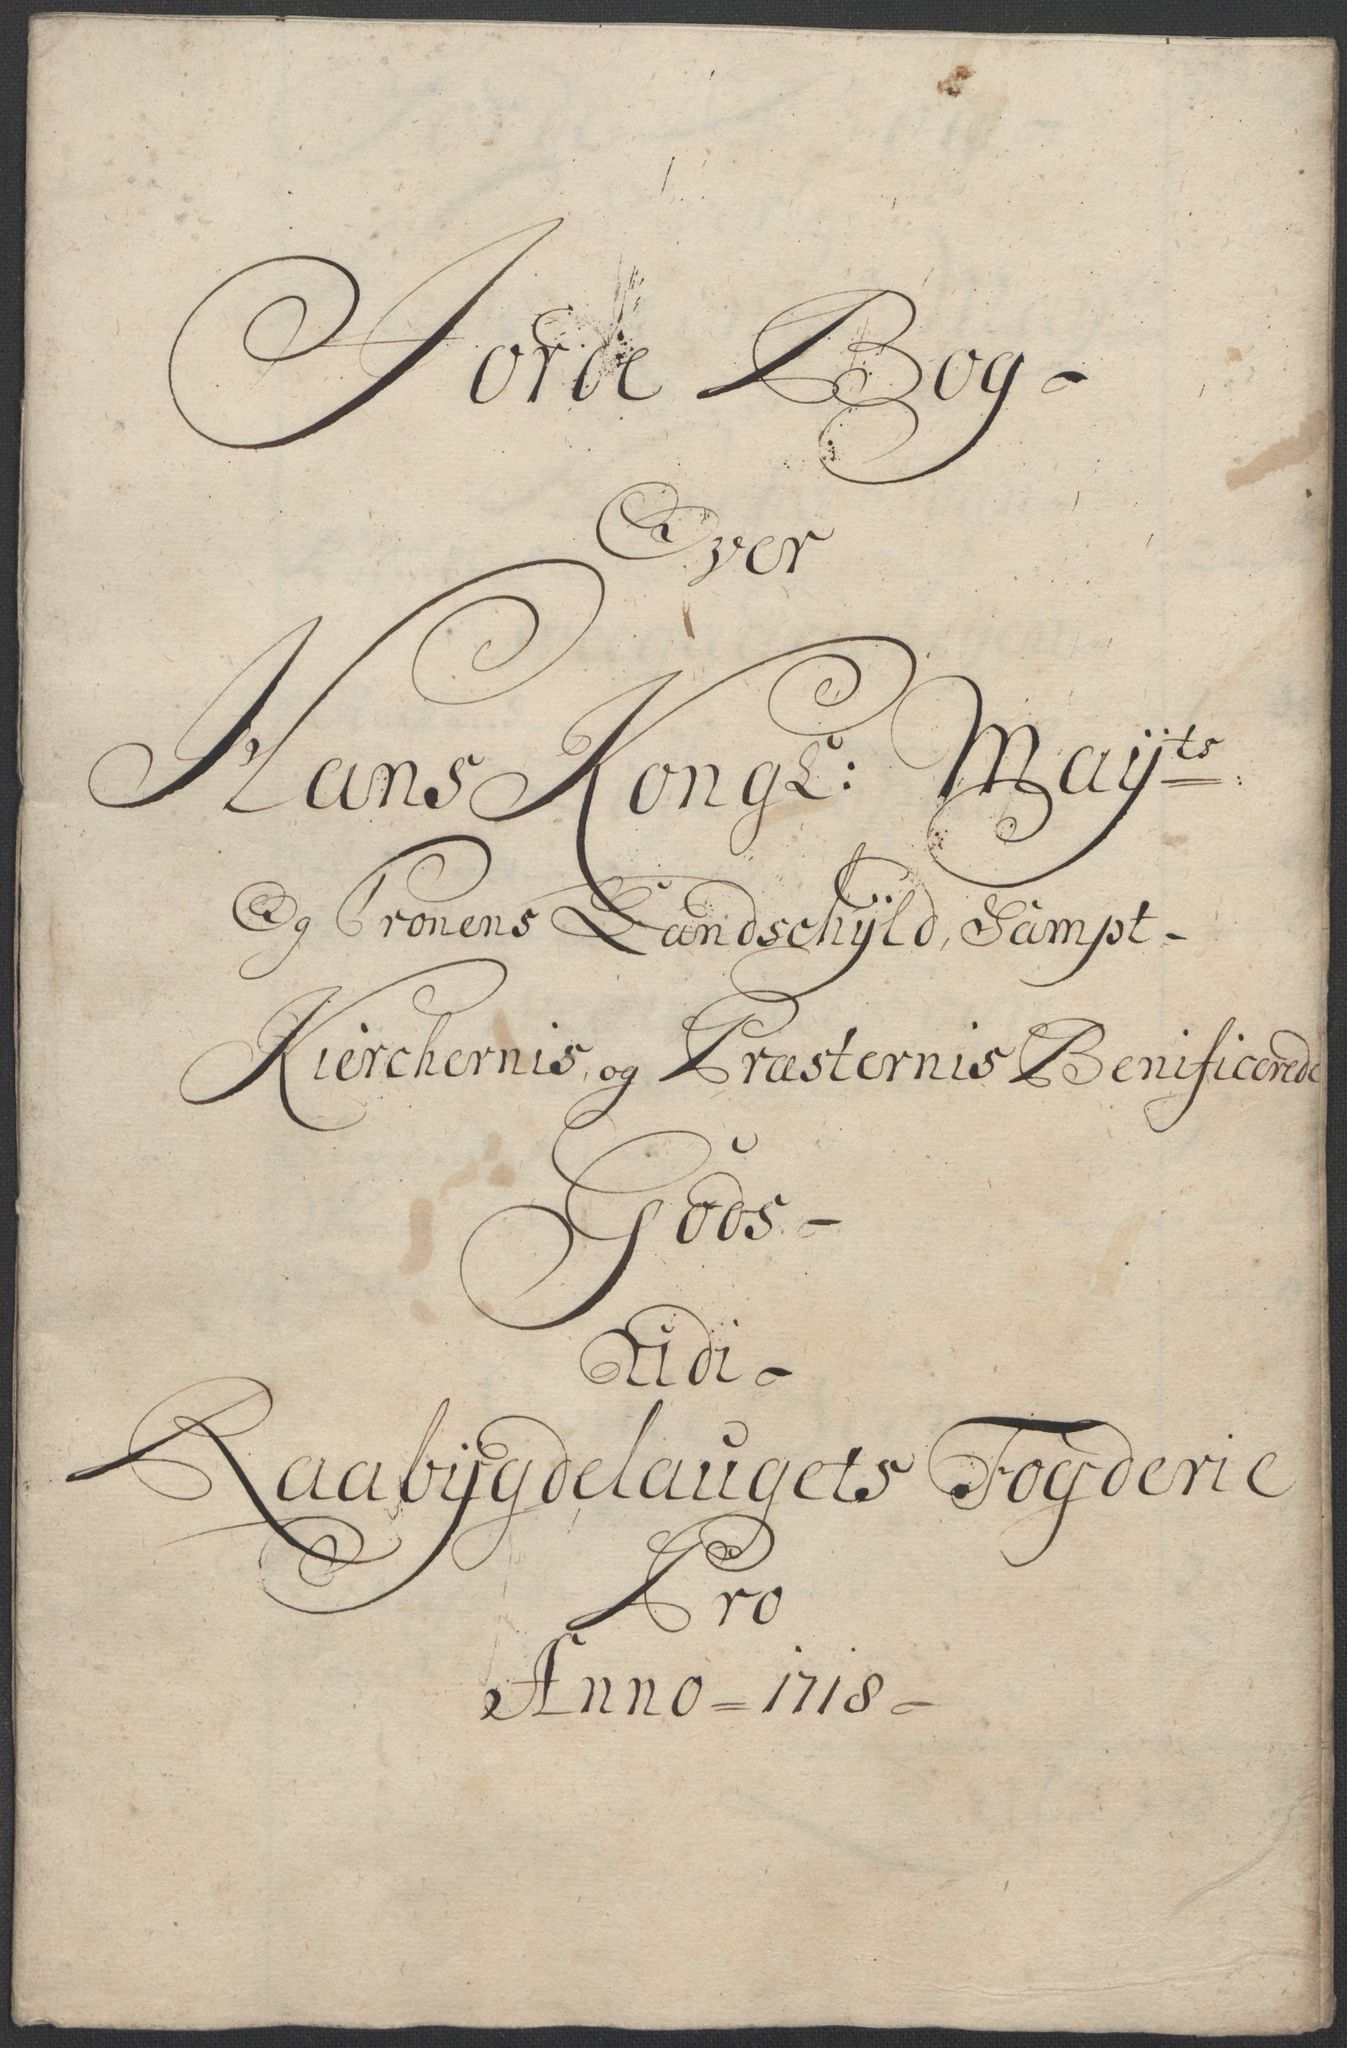 Jorde Bog-
Over
Hans Kongl: Maÿts:
Og Cronens Landschÿld, Sampt-
Kierchernis, og Præsternis Benificerede
Gods-
Udi-
Raabÿgdelaugets Fogderie
Pro
Anno = 1718-